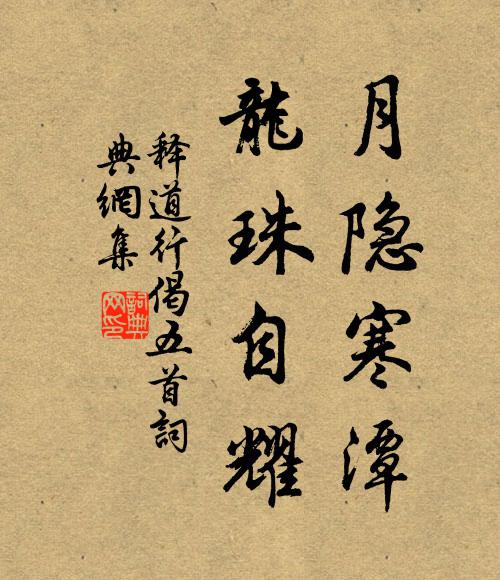 月隐寒潭
龍珠自耀
释道行偈五首詞
典網集
詞典
网印